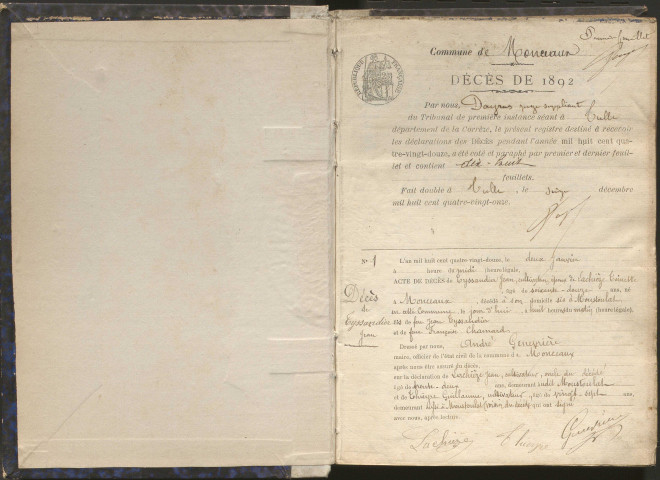 Premier feuillet
Commune de Monceaux
DÉCÈS DE 1892
RÉPUBLIQUE FRANÇAISE
Par nous, juge suppléant
du Tribunal de première instance séant à Tulle
département de la Corrèze, le présent registre destiné à recevoir
les déclarations des Décès pendant l'année mil huit cent qua-
tre-vingt-douze, a été coté et paraphé par premier et dernier feuil-
let et contient dix-huit
feuillets.
Fait double à Tulle, le seize décembre
mil huit cent quatre-vingt-onze.
N° 1 L'an mil huit cent quatre vingt-douze, le deux janvier
à heure du midi (heure légale,
ACTE DE DÉCÈS de Eyssardier Jean, cultivateur, époux de
âgé de soixante-douze ans, né
à Monceaux, décédé à son domicile sis à Moustoulat
commune, le jour d'hier, à huit heures du matin (heure légale),
fils de feu Jean Eyssardier
et de feue Françoise Chamard
Décès
de
Eyssardier
Jean
Dressé par nous, André Geneyrière
maire, officier de l'état civil de la commune de Monceaux
après nous être assuré du décès.
sur la déclaration de Lachièze Jean, cultivateur, du décédé
âgé de trente-deux ans, demeurant audit Moustoulat
et de Guillaume, cultivateur, âgé de vingt-sept ans,
demeurant Moustoulat, voisin du décédé qui ont signé
avec nous, après lecture.
Lachièze